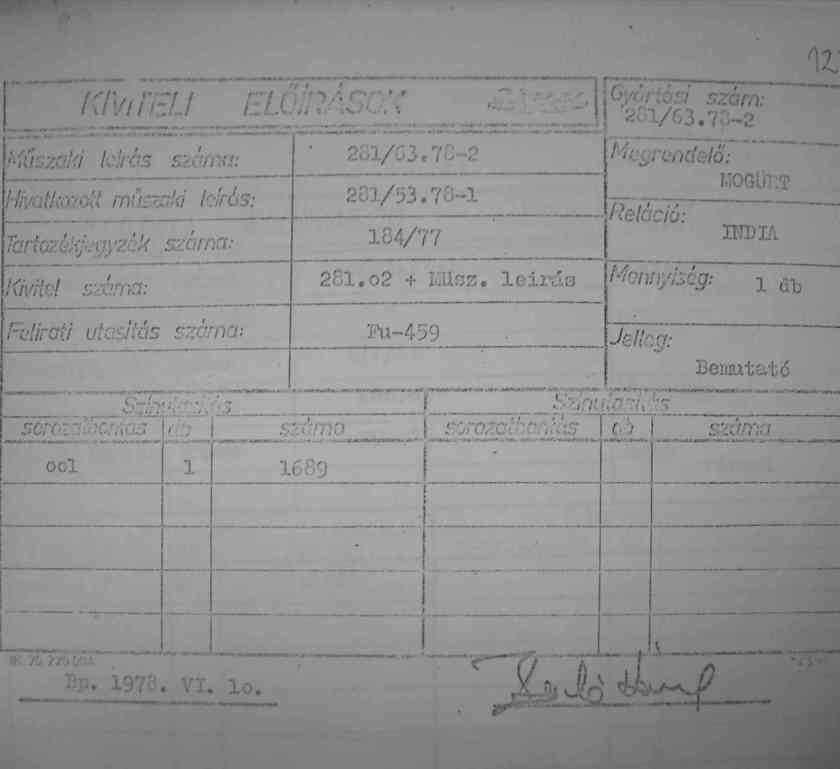 12
KIVITELI ELŐÍRÁSOK
Gyártási szám:
281/63.78-2
Műszaki leírás száma: 281/63.78-2
Megrendelő:
MOGÜRT
Hivatkozott műszaki leírás: 281/53.78-1
Reláció:
INDIA
Tartozékjegyzék száma: 184/77
Kivitel száma: 281.02 + Müsz. leirás
Mennyiség: 1 db
Felirati utasítás száma: Fu-459
Jelleg:
Bemutató
Színutasítás Színutasítás
sorozatbontás db száma sorozatbontás db száma
001 1 1689
Bp. 1978. VI. 10.